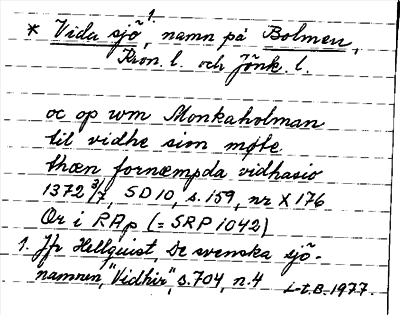 * Vida sjö¹, namn på Bolmen,
Kron. l. och Jönk. l.
oc op wm Monkaholman
til vidhe sion møte
thæn fornæmpda vidhasio
1372 3/7, SD 10, s. 159, nr X 176
Or i RAp (= SRP 1042)
1. Jfr Hellquist, De svenska sjö-
namnen, "Vidhir", s. 704, n. 4
L-t.B. 1977.